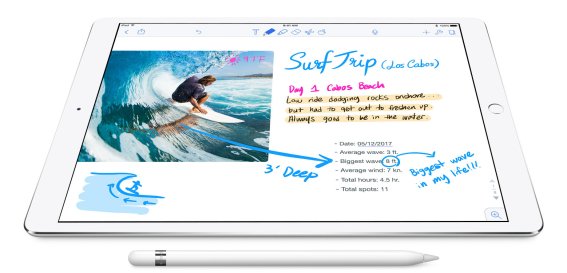 iPad
9:41 AM
100%
91 F
Surf Trip (Los Cabos)
Day 1 Cabos Beach
Low ride dodging rocks onshore...
but had to get out to freshen up.
Always good to be in the water.
- Date: 05/12/2017
- Average wave: 3 ft.
- Biggest wave: 8 ft.
- Average wind: 7 kn.
- Total hours: 4.5 hr.
- Total spots: 11
3' Deep
Biggest wave
in my life!!!